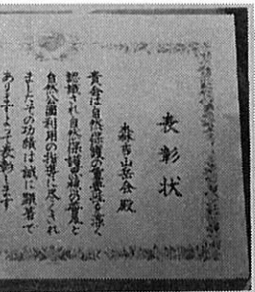 表彰状
森吉山岳会殿
貴会は自然保護の重要性を深く
認識され自然保護思想の普及と
自然公園利用の指導に尽くされ
ましたその功績は誠に顕著で
あります よって表彰します